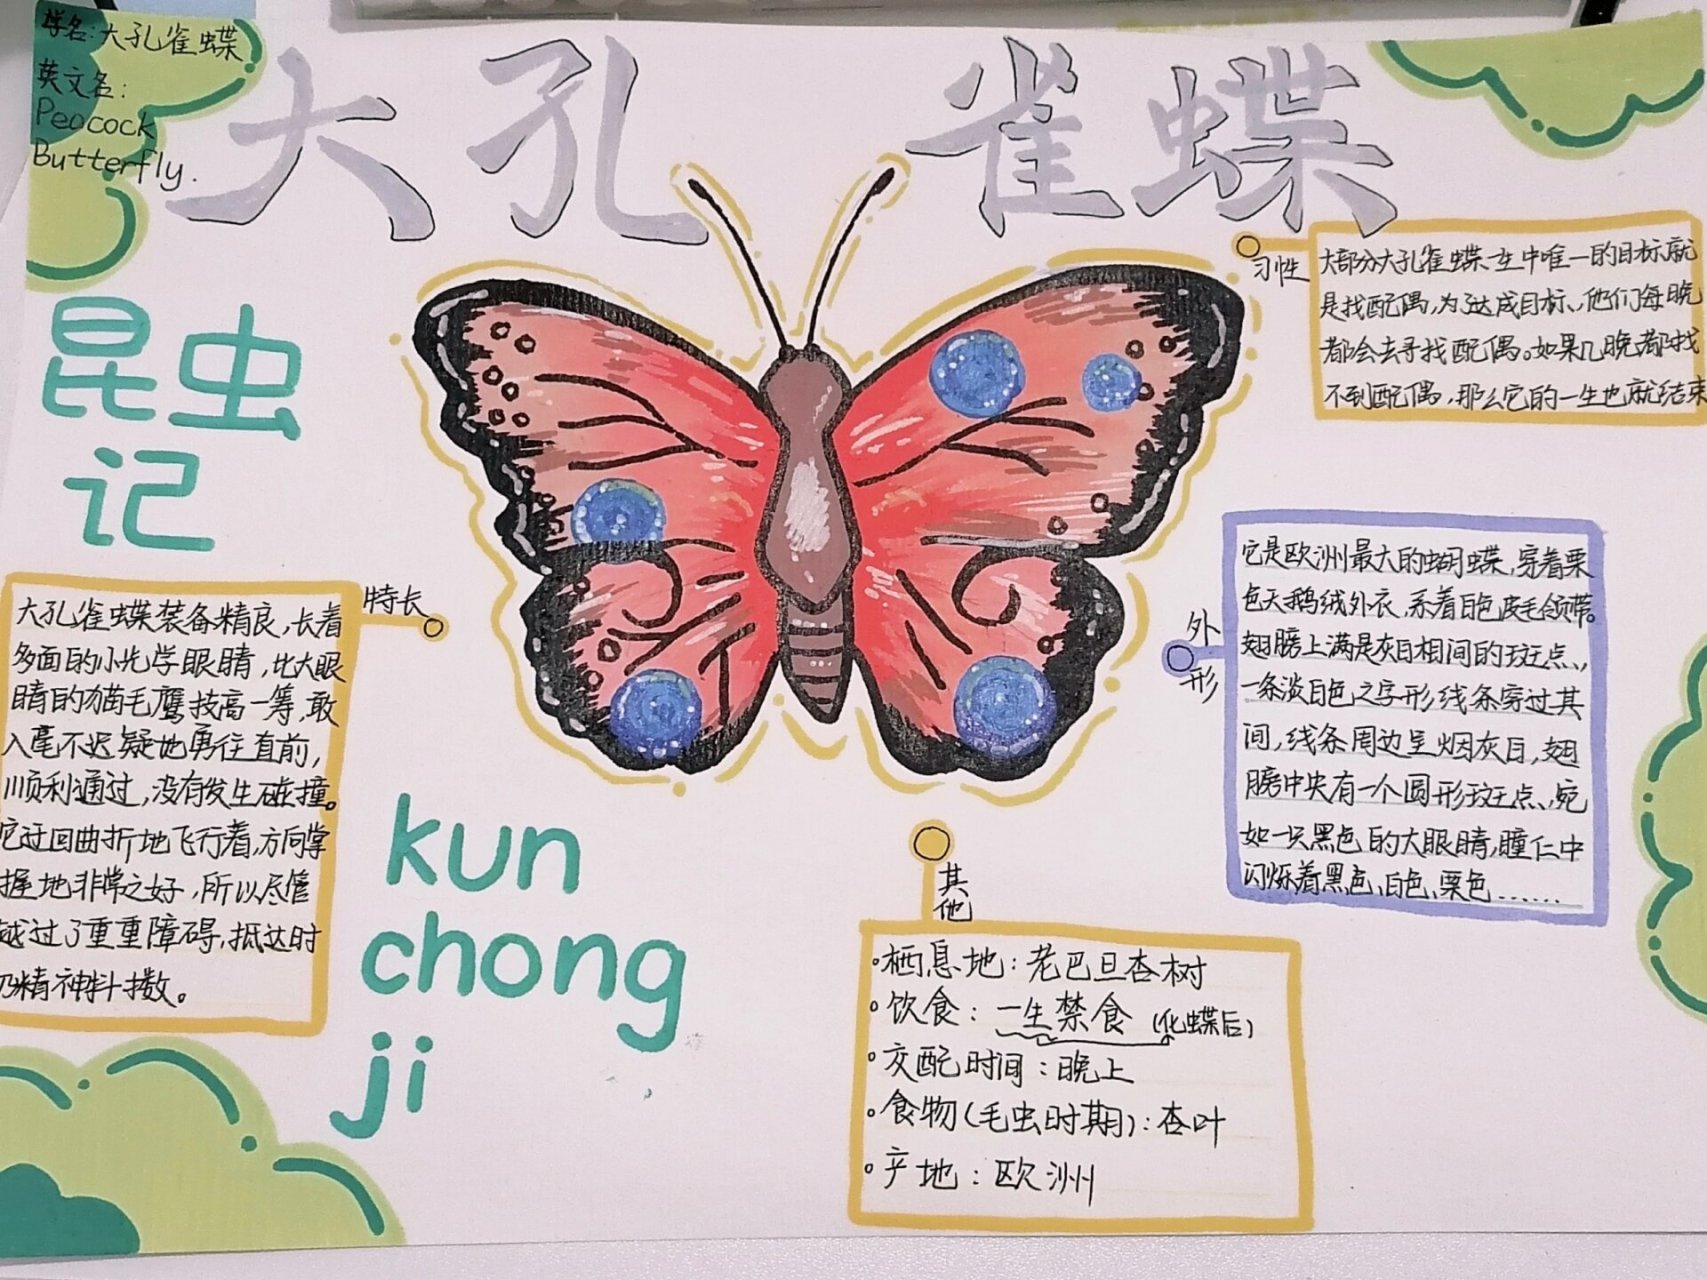 学名:大孔雀蝶
英文名:
Peacock
Butterfly.
大孔雀蝶
昆虫
记
kun
chong
ji
习性
大部分大孔雀蝶一生中唯一的目标就
是找配偶,为了达成目标、他们每晚
都会去寻找配偶。如果几晚都找
不到配偶,那么它的一生也就结束
特长
大孔雀蝶装备精良,长着
多面的小光学眼睛,比大眼
睛的猫毛鹰技高一筹,敢
入毫不迟疑地勇往直前,
顺利通过,没有发生碰撞。
它迂回曲折地飞行着,方向掌
握地非常之好,所以尽管
越过了重重障碍,抵达时
仍精神抖擞。
外形
它是欧洲最大的蝴蝶,穿着栗
色天鹅绒外衣,系着白色皮毛领带。
翅膀上满是灰白相间的斑点,
一条淡白色之字形线条穿过其
间,线条周边呈烟灰白,翅
膀中央有一个圆形斑点,宛
如一只黑色的大眼睛,瞳仁中
闪烁着黑色、白色、栗色……
其他
•栖息地:老巴旦杏树
•饮食:一生禁食(化蝶后)
•交配时间:晚上
•食物(毛虫时期):杏叶
•产地:欧洲